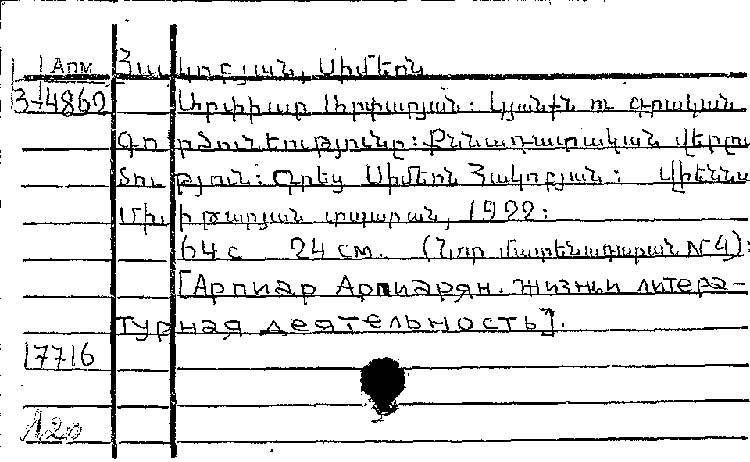 Арм Հակոբյան, Սիմեոն
3-4862 Արփիար Արփիարյան: Կյանքն ու գրական
գործունեությունը: Քննադատական վերլու
ծություն: Գրեց Սիմեոն Հակոբյան: Վիեննա
Մխիթարյան տպարան, 1922:
64 с 24 см. (Նոր մատենադարան N 4):
[Арпиар Арпиарян. Жизнь и литера-
турная деятельность].
17716
120